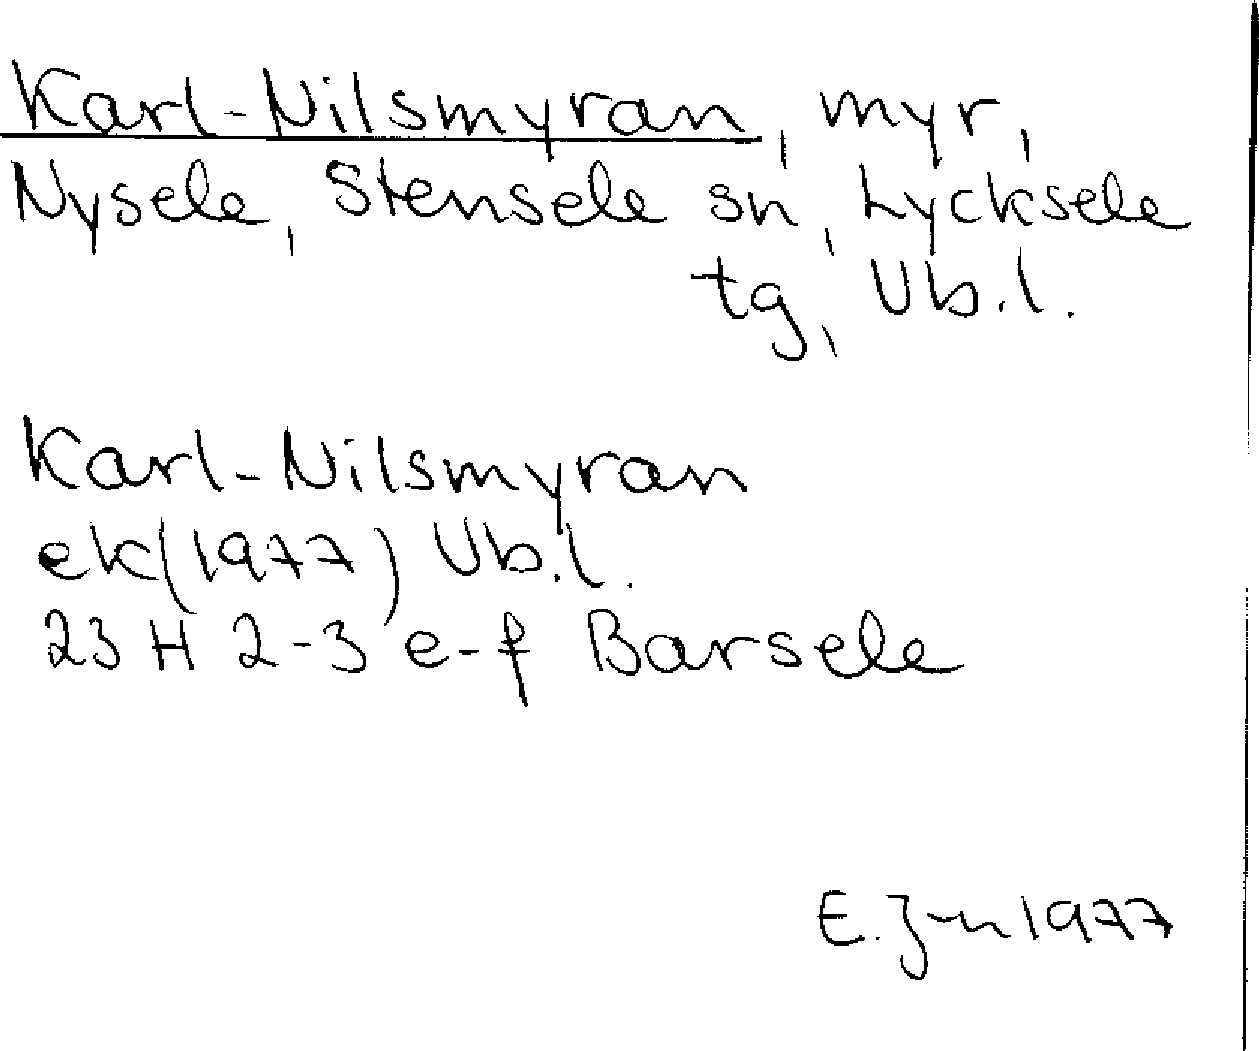 Karl-Nilsmyran, myr,
Nysele, Stensele sn, Lycksele
tg, Vb.l.
Karl-Nilsmyran
ek(1977) Vb.l.
23 H 2-3 e-f Barsele
E. 1977